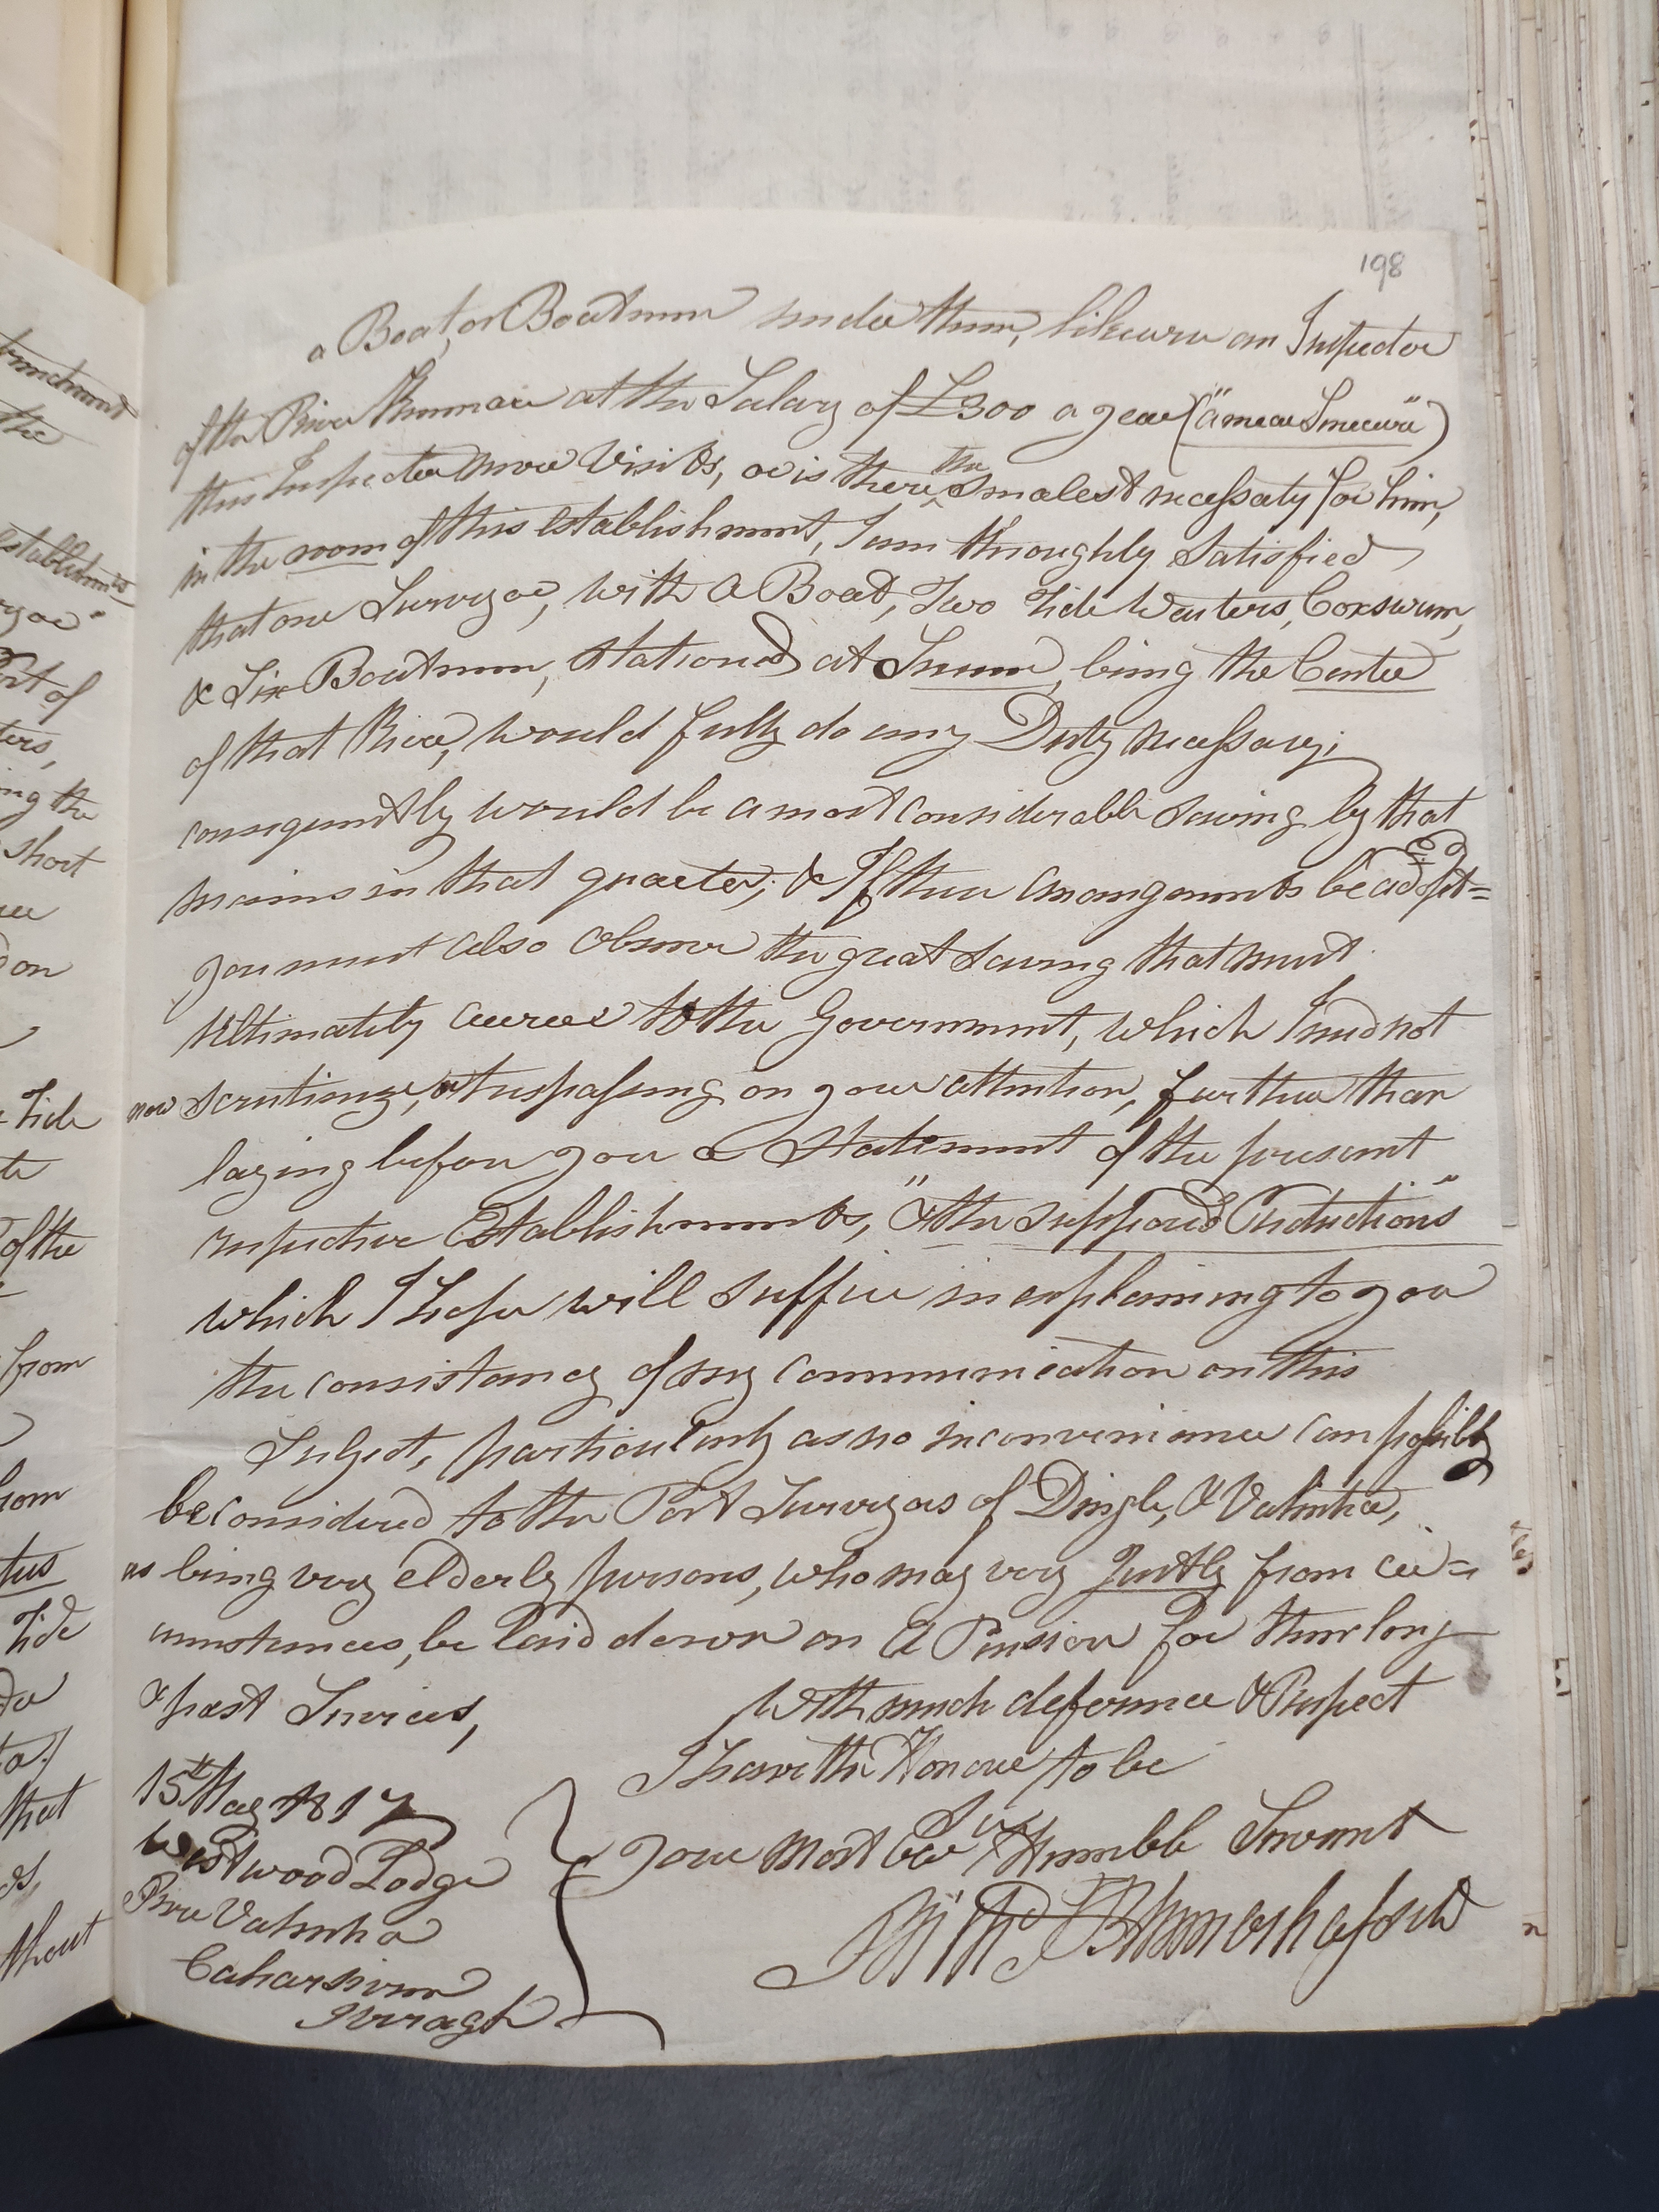 198
a Boat, or Boatmen under them, likewise an Inspector
of the River Kenmare at the Salary of £300 a year ("a mear Sinecure")
this Inspector never Visits, or is there the smalest necessaty for him,
in the room of this establishment, I am thoroughly Satisfied
that one Surveyor, with a Boat, Two Tide Waiters, Coxswain,
& Six Boatmen, stationed at Sneem, being the Center
of that River, would fully do any Duty necessary;
consequently would be a most considerable saving by that
means in that quarter; & If these arrangements be adopt=ed
you must also observe the great saving that must
Ultimately accrue to the Government, which I need not
now scrutinize, or trespassing on your attention, further than
laying before you a Statement of the present
respective Establishments, "& the supposed Reductions"
which I hope will suffice in explaining to you
the consistancy of my communication on this
Subject, particularly as no inconvenience can possibly
be considered to the Port Surveyors of Dingle, & Valentia,
as being very elderly persons, who may very Justly from cir=
cumstances, be laid down on a Pension for their long
& past Services,
With much deference & Respect
I have the Honour to be
Sir
Your Most Obt & Humble Servant
15th May 1817
Westwood Lodge
River Valentia
Caharsiveen
Iveragh